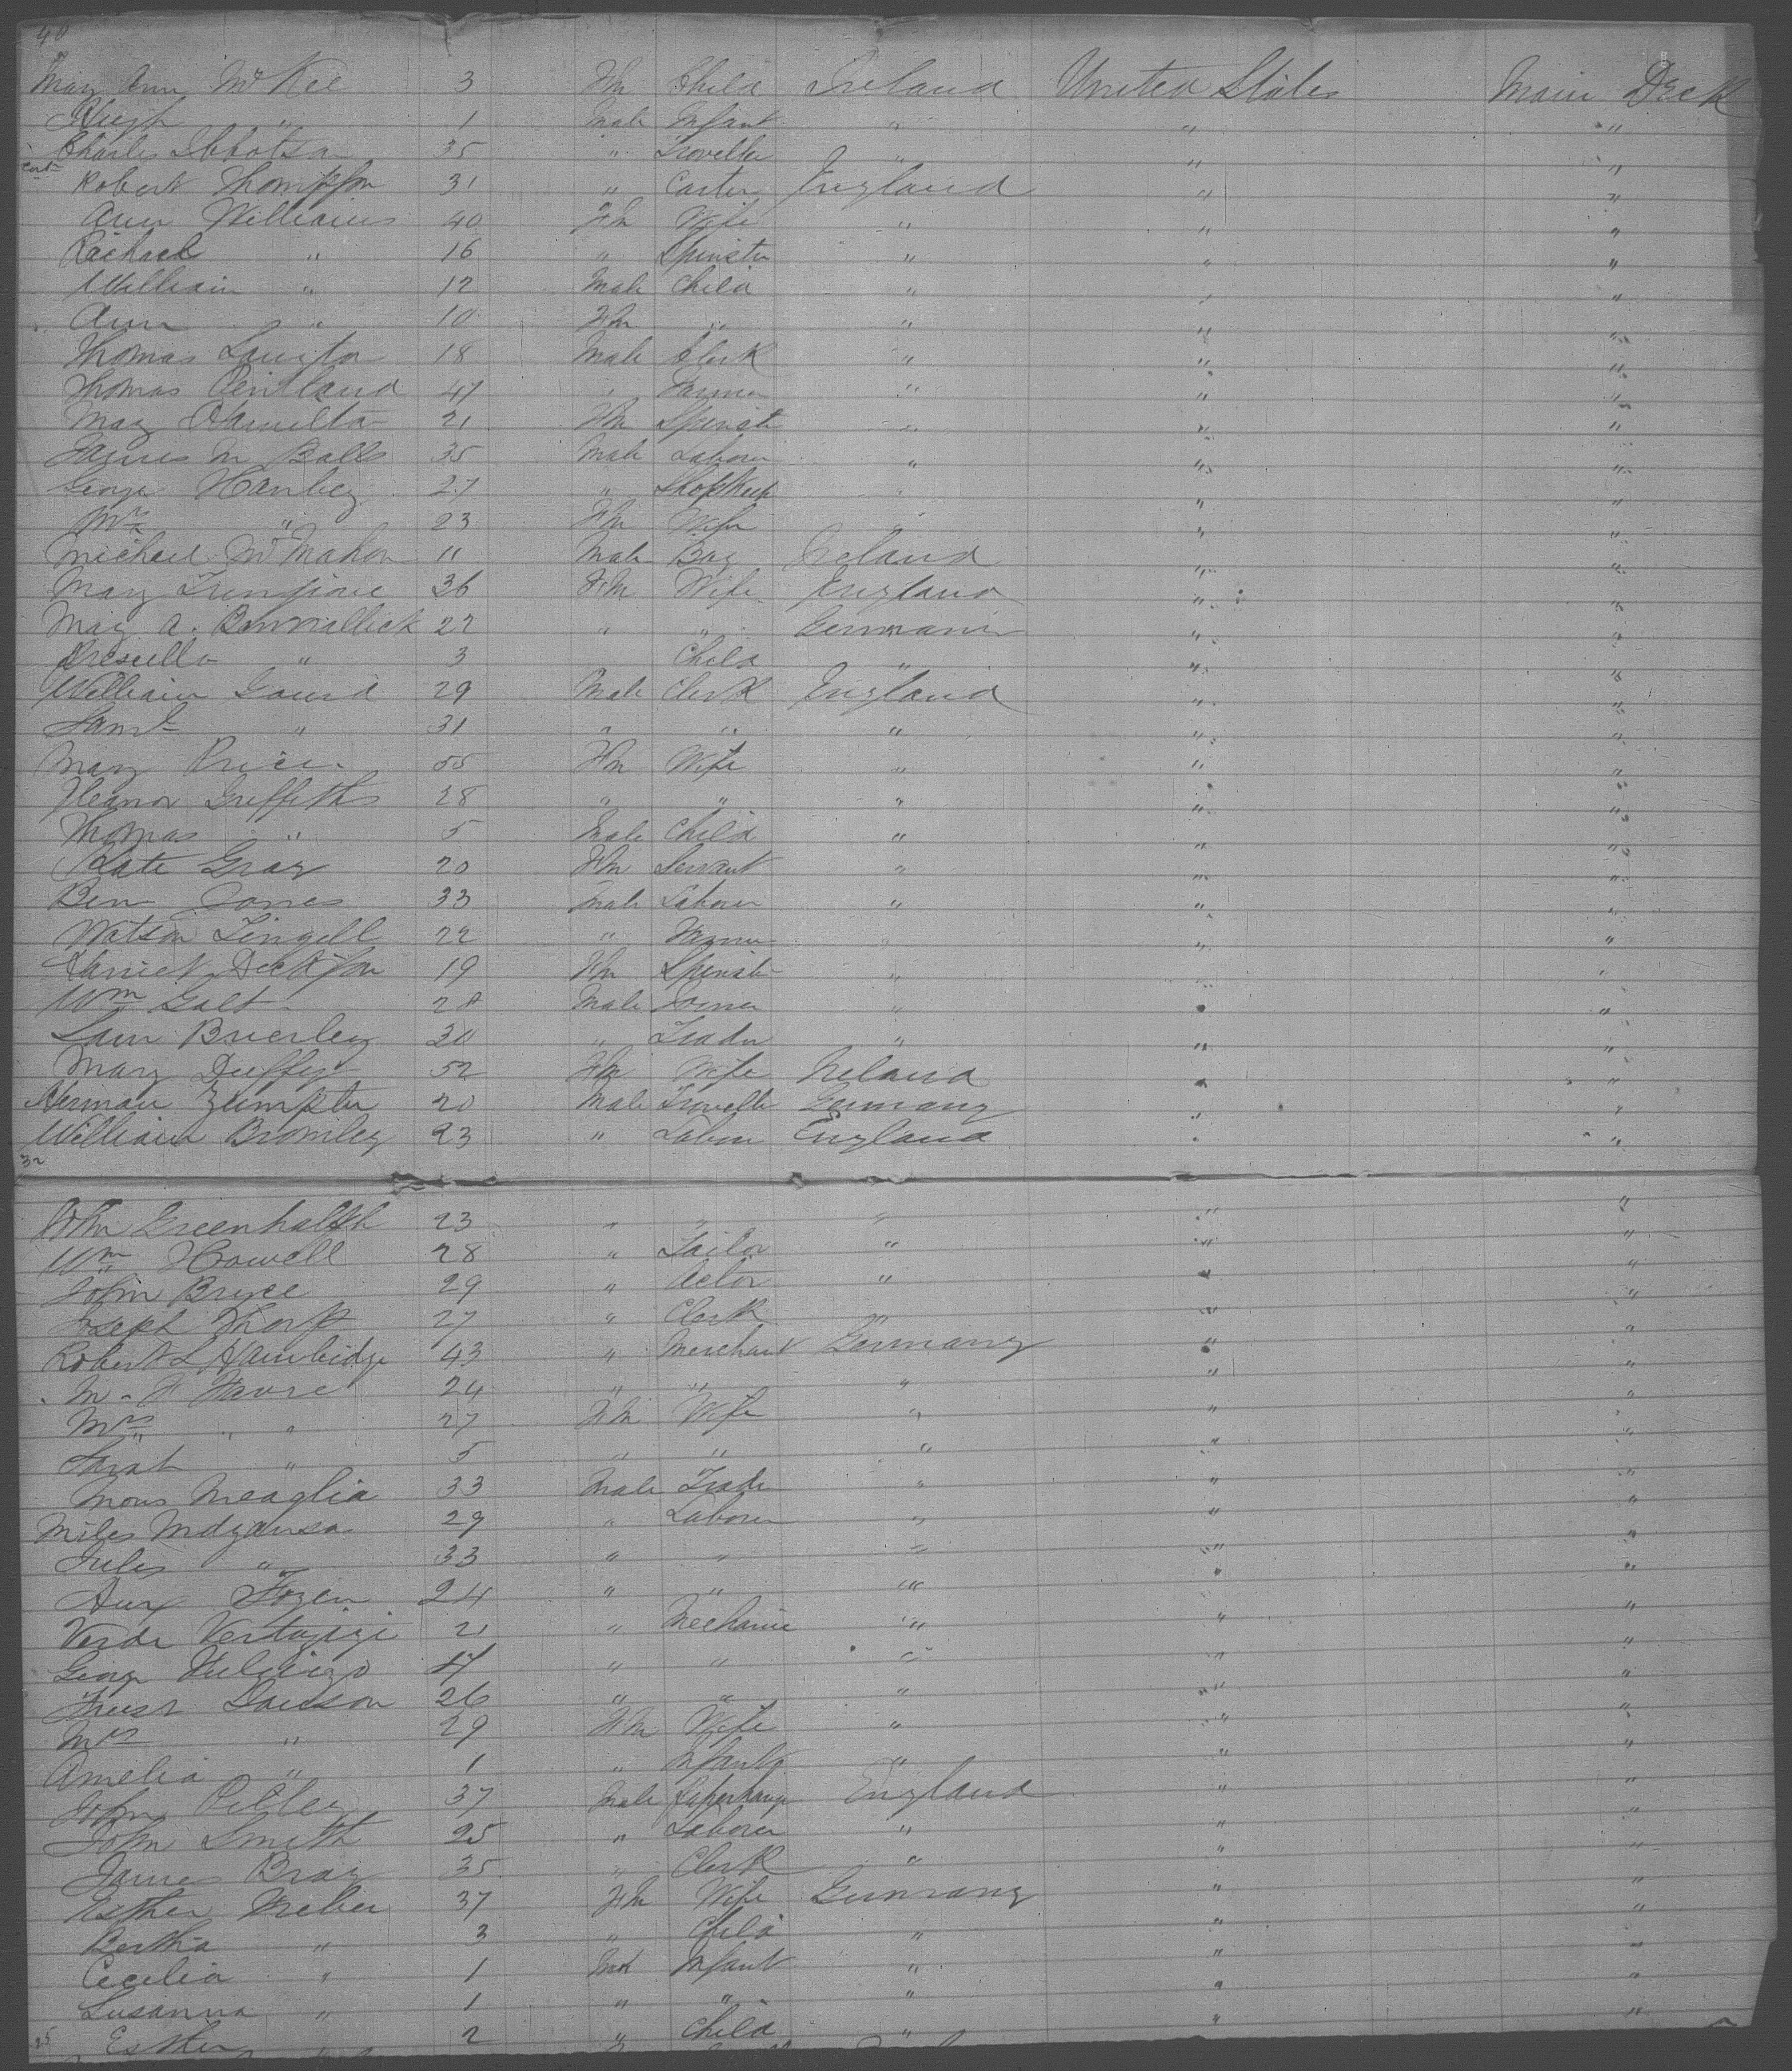 40
Mary Ann McKee 3 Fm Child Ireland United States Main Deck
Hugh " 1 Male Infant " " "
Charles Ibbotson 35 " Traveller " " "
Robert Thompson 31 " Carter England " "
Ann Williams 40 Fm Wife " " "
Rachael " 16 " Spinster " " "
William " 12 Male Child " " "
Ann " 10 Fm " " " "
Thomas Langton 18 Male Clerk " " "
Thomas Pentland 47 " Farmer " " "
May Hamilton 21 Fm Spinst " " "
James M Balls 35 Male Laborer " " "
George Hanbey 27 " Shopkeep " " "
Mrs " 23 Fm Wife " " "
Michael McMahon 11 Male Boy Ireland " "
Mary 36 Fm Wife England " "
May A. 22 " " Germany " "
Prescilla " 3 Child " " "
William Gaund 29 Male Clerk England " "
Saml " 31 " " " " "
Mary Price 55 Fm Wife " " "
Eleanor Griffiths 28 " " " " "
Thomas " 5 Male Child " " "
Kate Gray 20 Fm Servant " " "
Ben Jones 33 Male Laborer " " "
Watson Lingell 22 " " " "
Harriet Dickson 19 Fm Spinst " " "
Wm Galt 28 Male " " "
Sam Brierley 30 " Trader " " "
Mary Duffy 52 Fm Wife Ireland " "
Herman Zumpter 20 Male Travelle Germany " "
William Bromley 23 " Labor England " "
32
John Greenhalgh 23 " " " " "
Wm Howell 28 " Tailor " " "
John Bryce 29 " Actor " " "
Joseph Thorp 27 " Clerk " " "
Robert L Hambidge 43 " Merchant Germany " "
M. F Favre 24 " " " " "
Mrs " 27 Fm Wife " " "
Sarah " 5 " " " " "
Mons Meaglia 33 Male Trade " " "
Miles 29 " Laborer " " "
Jules " 33 " " " " "
24 " " " " "
Verde 21 " Mechanic " " "
George 47 " " " " "
Dawson 26 " " " " "
Mrs " 29 Fm Wife " " "
Amelia " 1 " Infant " " "
John 37 Male Paperhang England " "
John Smith 25 " Laborer " " "
James Bray 35 " Clerk " " "
Esther 37 Fm Wife Germany " "
Bertha " 3 " Child " " "
Cecilia " 1 Infant " " "
Susanna " 1 " " " " "
25 Esther " 2 " Child " " "